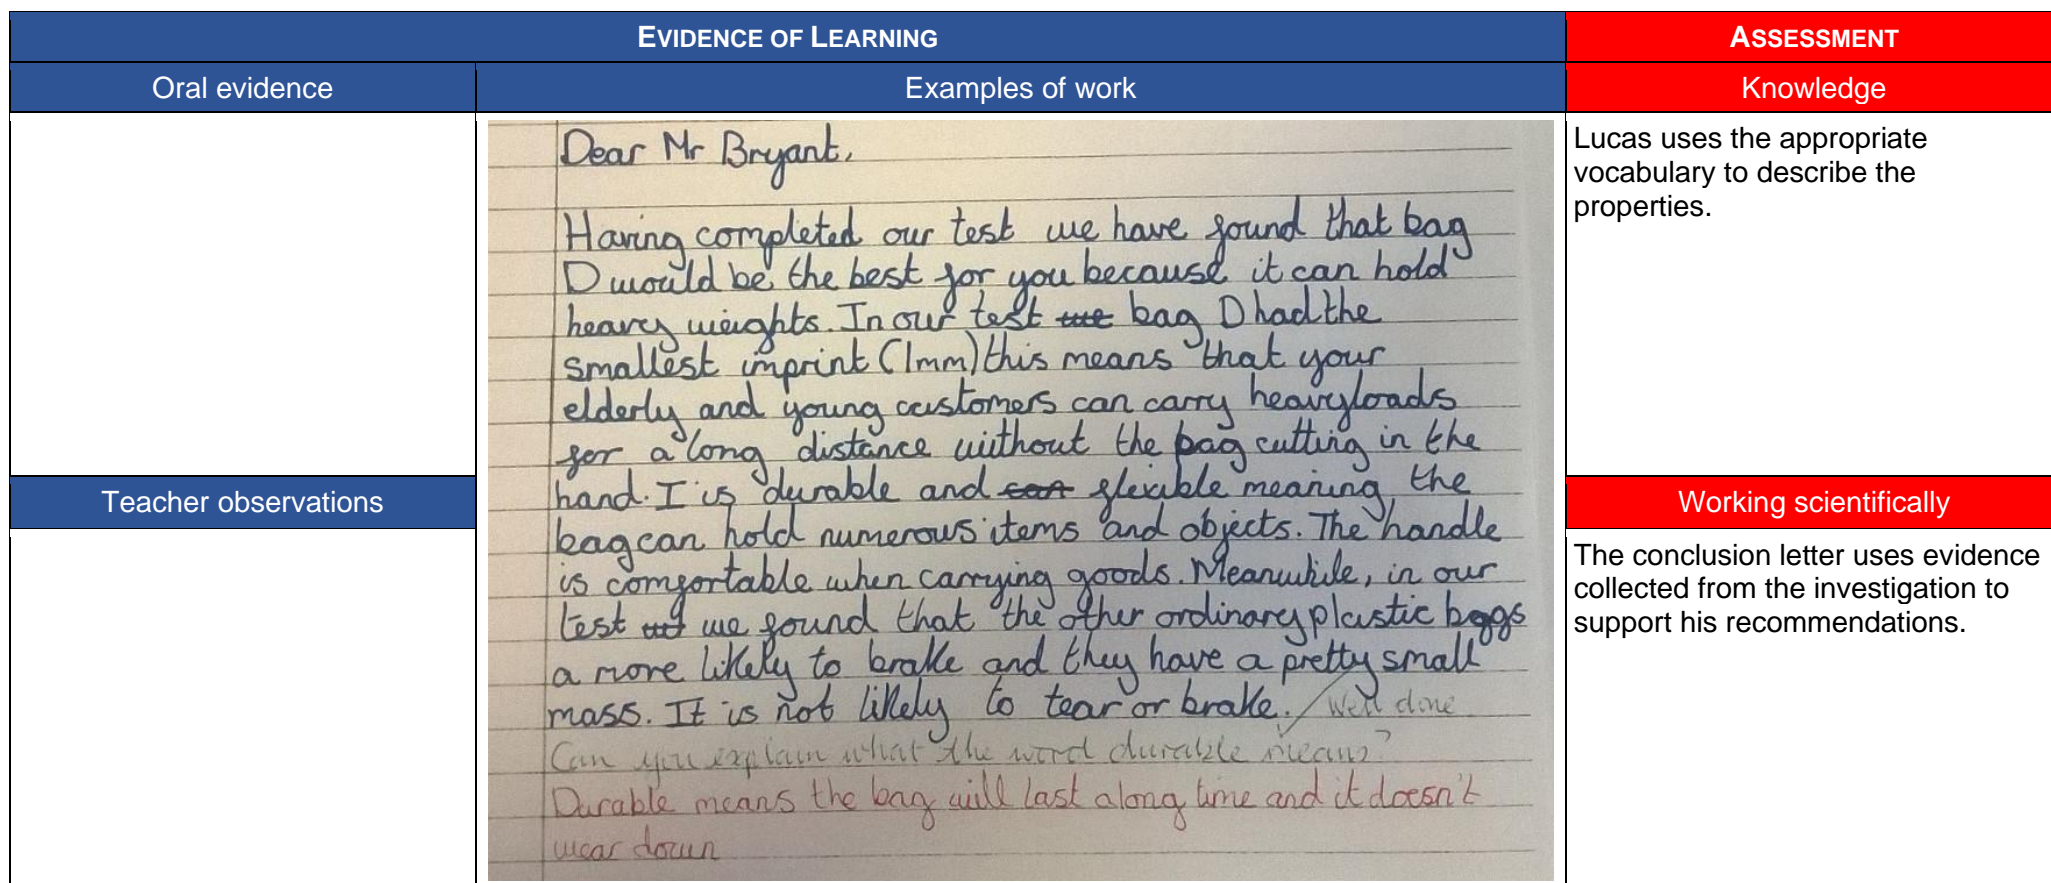 EVIDENCE OF LEARNING
ASSESSMENT
Oral evidence
Examples of work
Knowledge
Dear Mr Bryant,
Having completed our test we have found that bag
D would be the best for you because it can hold
heavy weights. In our test we bag D had the
smallest imprint (1mm) this means that your
elderly and young customers can carry heavy loads
for a long distance without the bag cutting in the
hand. I is durable and can flexible meaning the
bag can hold numerous items and objects. The handle
is comfortable when carrying goods. Meanwhile, in our
test we found that the other ordinary plastic bags
a more likely to brake and they have a pretty small
mass. It is not likely to tear or brake. Well done
Can you explain what the word durable means?
Durable means the bag will last along time and it doesn't
wear down
Lucas uses the appropriate
vocabulary to describe the
properties.
Teacher observations
Working scientifically
The conclusion letter uses evidence
collected from the investigation to
support his recommendations.